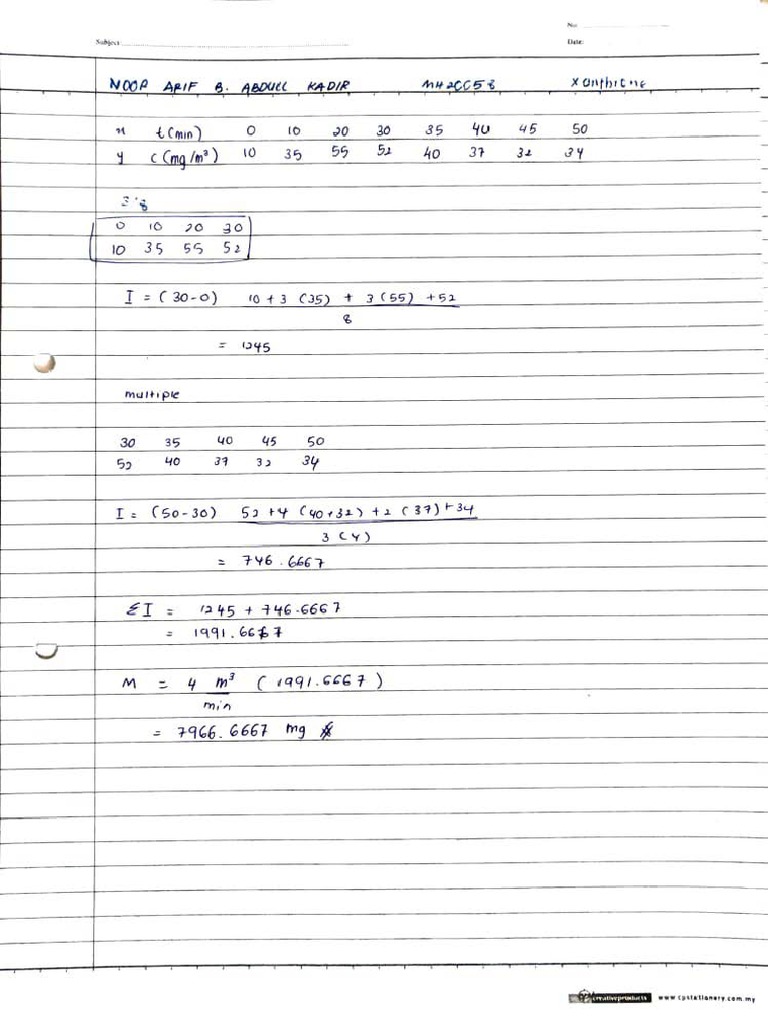 No:
Subject: Date:
NOOR ARIF B. ABDULL KADIR MH20058
x t(min) 0 10 20 30 35 40 45 50
y c(mg/m³) 10 35 55 52 40 37 32 34
3/8
0 10 20 30
10 35 55 52
I = (30-0) 10 + 3 (35) + 3 (55) + 52
8
= 1245
multiple
30 35 40 45 50
52 40 37 32 34
I = (50-30) 52 + 4 (40+32) + 2 (37) + 34
3 (4)
= 746.6667
ΣI = 1245 + 746.6667
= 1991.6667
M = 4 m³ (1991.6667)
min
= 7966.6667 mg
creativeproducts www.cpstationery.com.my